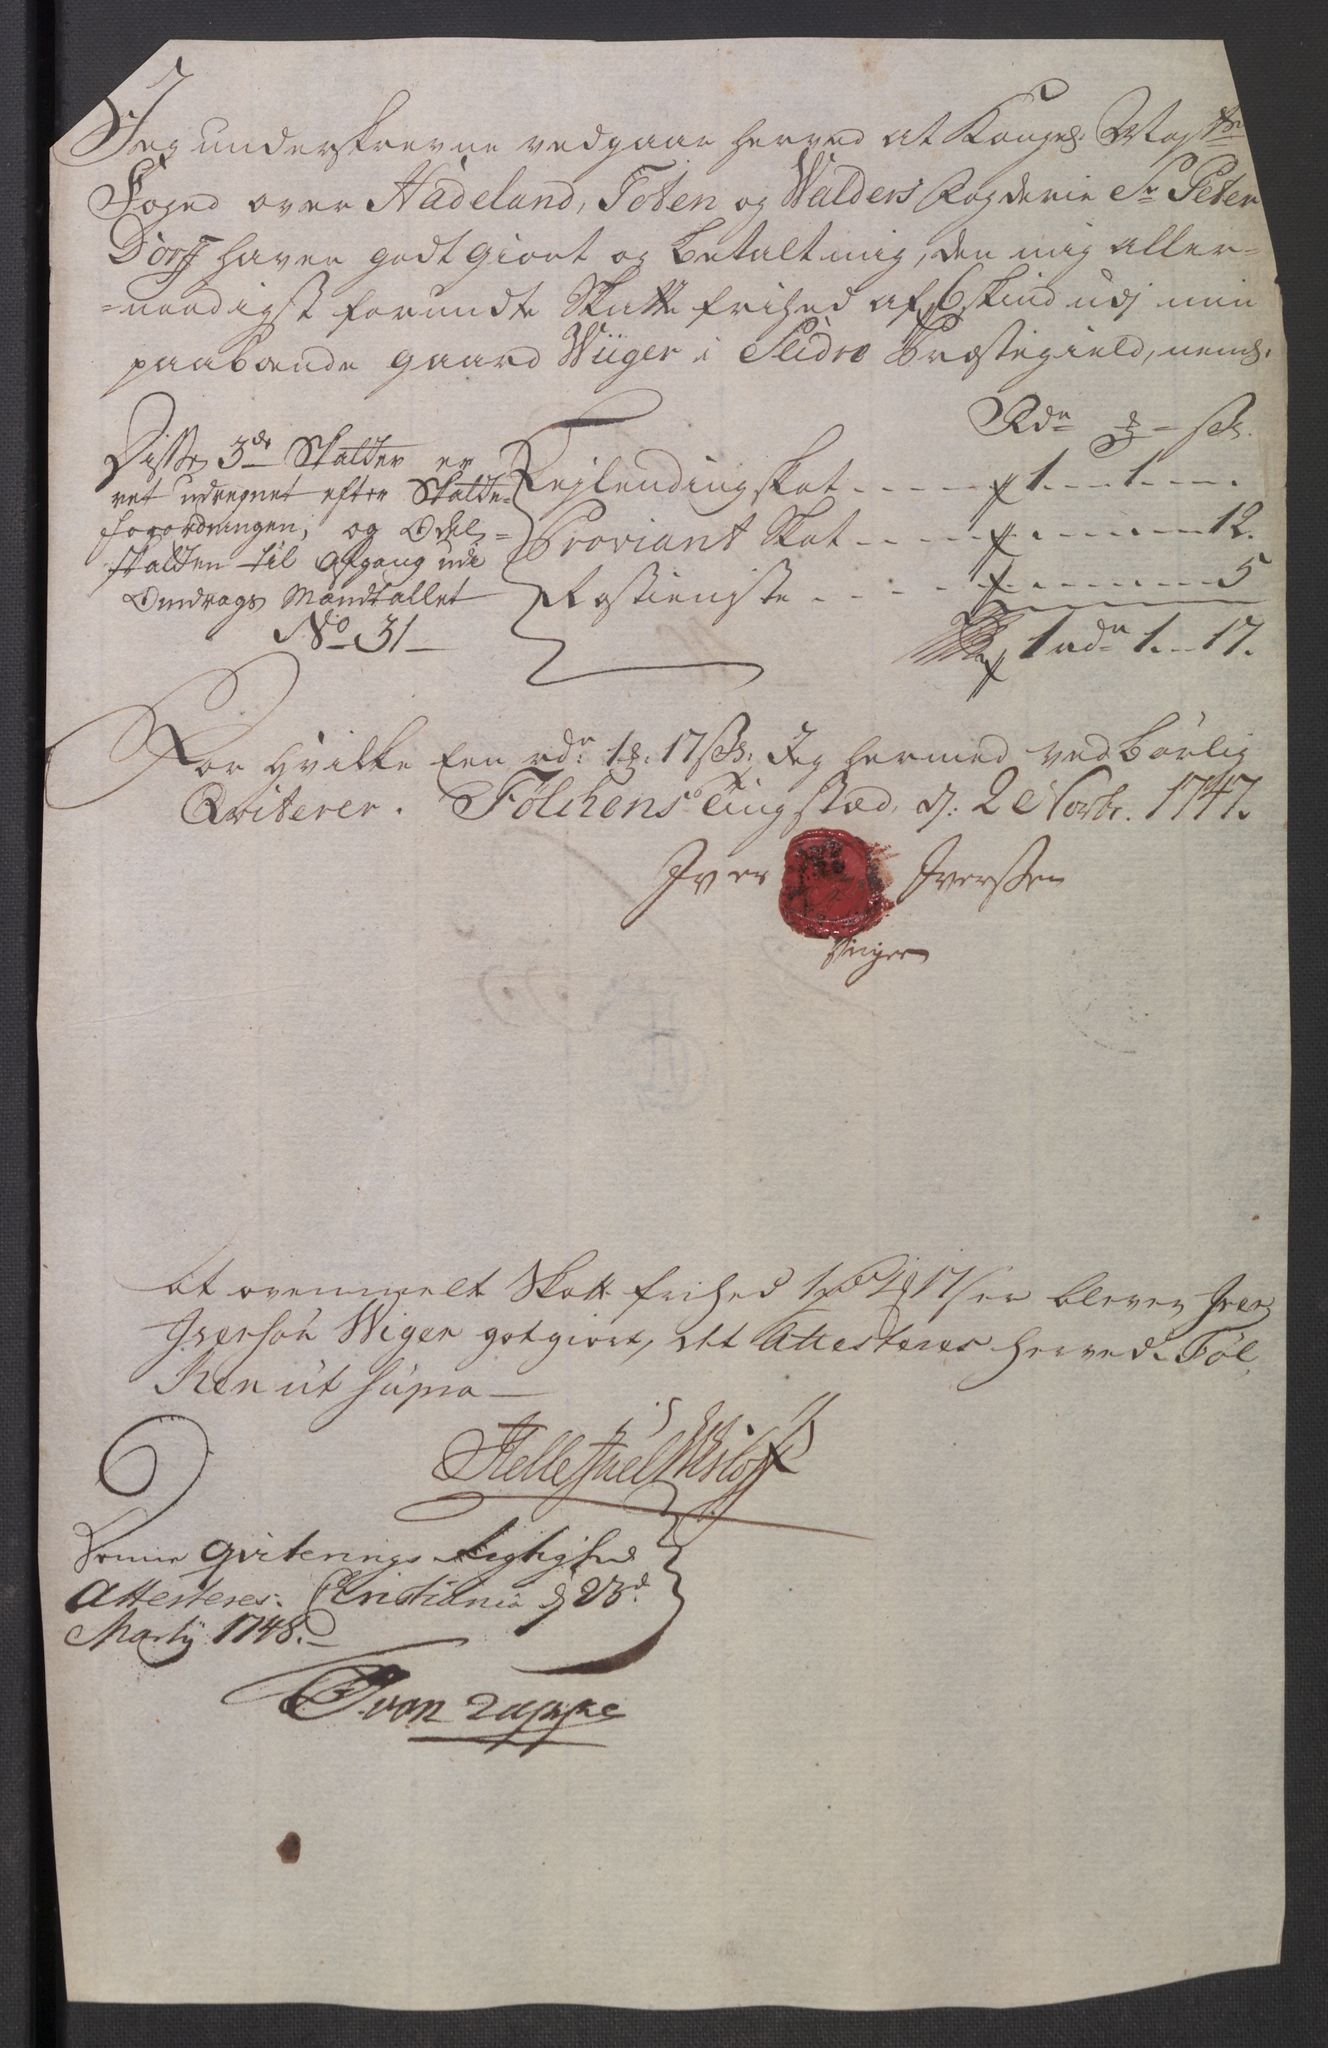 Jeg underskrevne vedgaar herved at Kongel: Mays:ts
Foged over Hadeland, Toten og Walders Fogderie Sr Peter
Dorff haver godtgiort og betalt mig, den mig aller-
-naadigst forundte Skatte frihed af 6 skind udj min
paaboende gaard Wiiger i Slidre Præstegield, neml:
Rdr ꝥ - sk.
Disse 3de Skatter er
ret udregnet efter Skatte-
forordningen, og Odel-
skatten til Afgang udi
Omdrags Mandtallet
No 31
Leylendingskat - - - - 1 - - 1 - - -.
Proviant Skat - - - - - - - - - 12.
Rostieniste - - - - - - - - - 5
1 rdr 1. - 17.
For hvilke Een rdr 1ꝥ. 17 sk: Jeg hermed ved børlig
Qviterer. Følchens Tingstæd, d: 2 Novbr. 1747.
Iver Iverssen
Wiiger
At ovenmelt Skatt frihed 1 rdr 1 ꝥ 17 s er bleven Iver
Iversøn Wiger godtgiort, det Attesteres herved. Føl,
ken ut supra
Helle Juel Wisløff
Denne Qviterings Rigtighed
Attesteres. Christiania d 23d
Martij 1748.
T. von Zappe